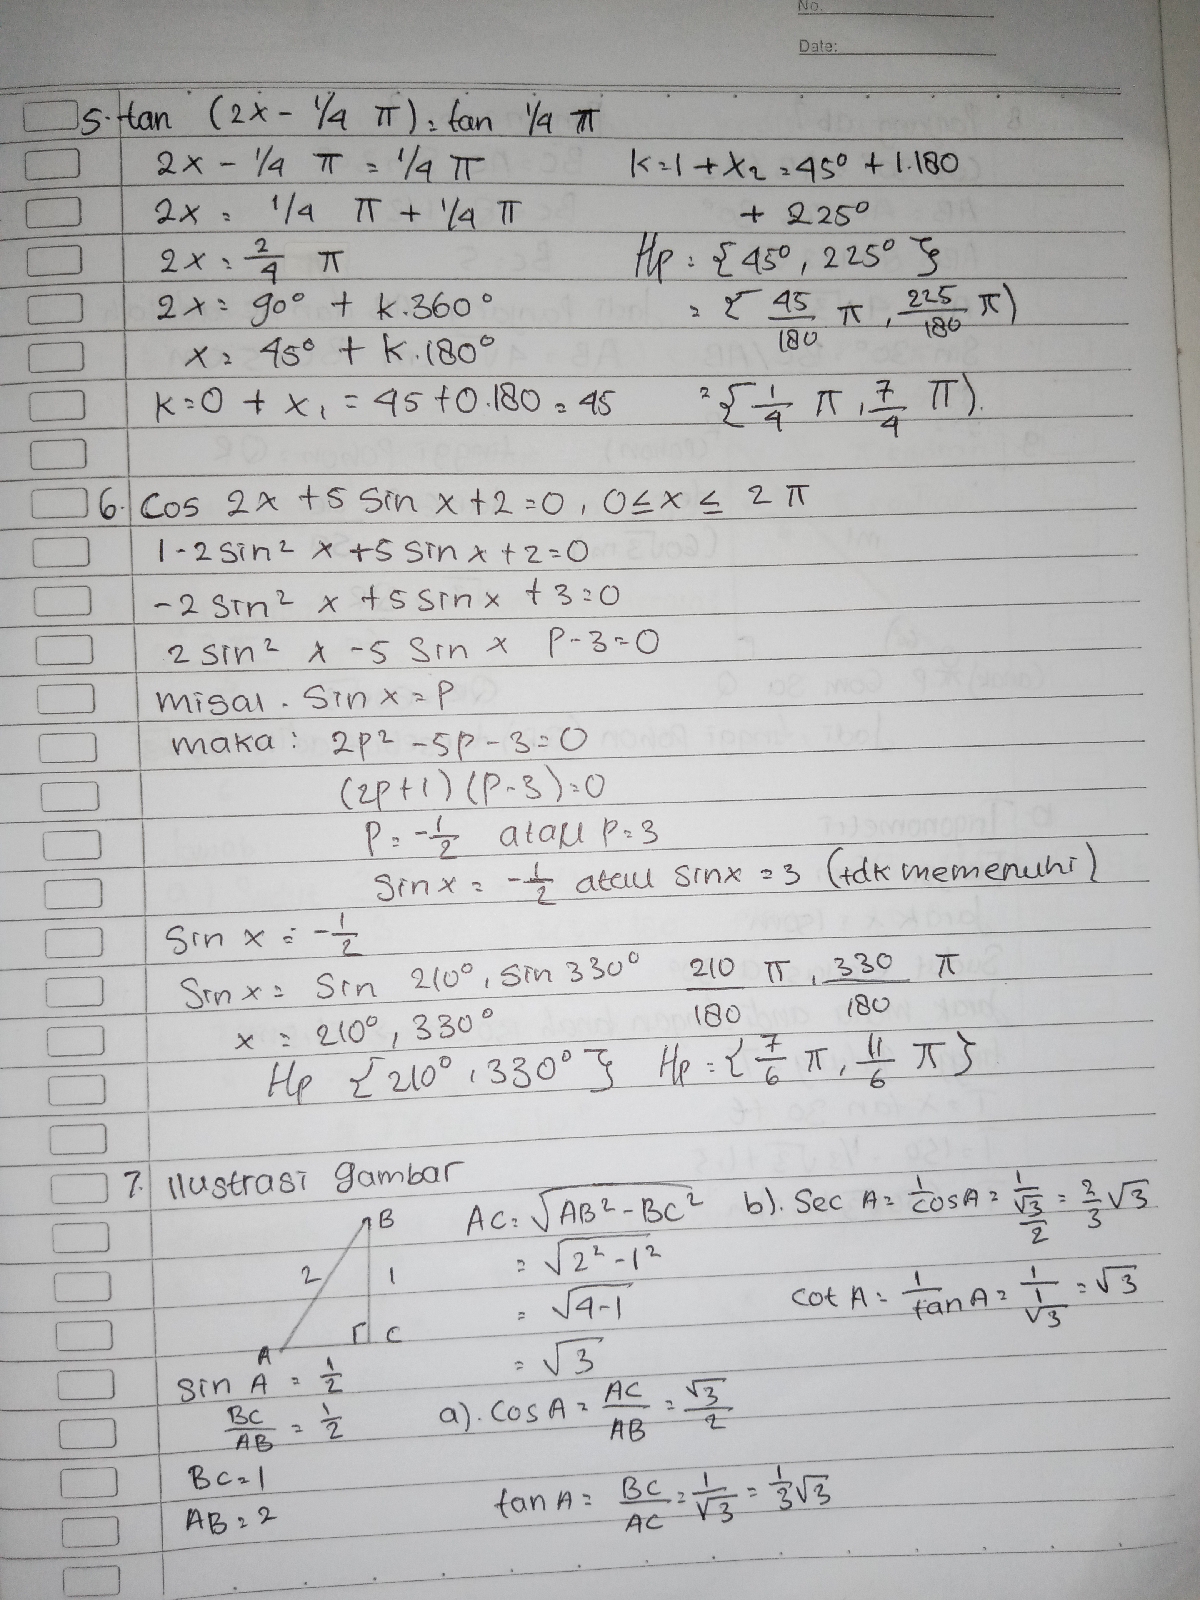 No.
Date:
5. tan (2x - 1/4 π) = tan 1/4 π
2x - 1/4 π = 1/4 π
2x = 1/4 π + 1/4 π
2x = 2/4 π
2x = 90° + k.360°
x = 45° + k.180°
k=0 + x₁ = 45 + 0.180 = 45
k=1 + x₂ = 45° + 1.180
+ 225°
Hp = {45°, 225°}
= { 45/180 π, 225/180 π)
= { 1/4 π, 7/4 π).
6. Cos 2x + 5 Sin x + 2 = 0, 0 ≤ x ≤ 2 π
1 - 2 sin² x + 5 sin x + 2 = 0
-2 sin² x + 5 sin x + 3 = 0
2 sin² x - 5 Sin x P - 3 = 0
misal. Sin x = P
maka : 2P² - 5P - 3 = 0
(2P + 1) (P - 3) = 0
P = -1/2 atau P = 3
Sin x = -1/2 atau sin x = 3 (tdk memenuhi)
Sin x = -1/2
Sin x = Sin 210°, Sin 330°
x = 210°, 330°
Hp {210°, 330°}
210/180 π, 330/180 π
Hp = { 7/6 π, 11/6 π }
7. Ilustrasi gambar
B
2
1
A
C
sin A = 1/2
BC/AB = 1/2
BC = 1
AB = 2
AC = √AB² - BC²
= √2² - 1²
= √4-1
= √3
a). Cos A = AC/AB = √3/2
tan A = BC/AC = 1/√3 = 1/3 √3
b). Sec A = 1/cos A = 1/√3/2 = 2/3 √3
cot A = 1/tan A = 1/1/√3 = √3